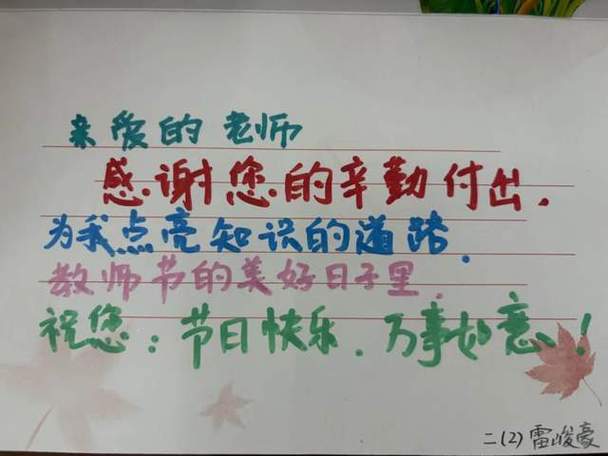 亲爱的老师
感谢您的辛勤付出.
为我点亮知识的道路.
教师节的美好日子里.
祝您:节日快乐.万事如意!
二(2)雷峻豪